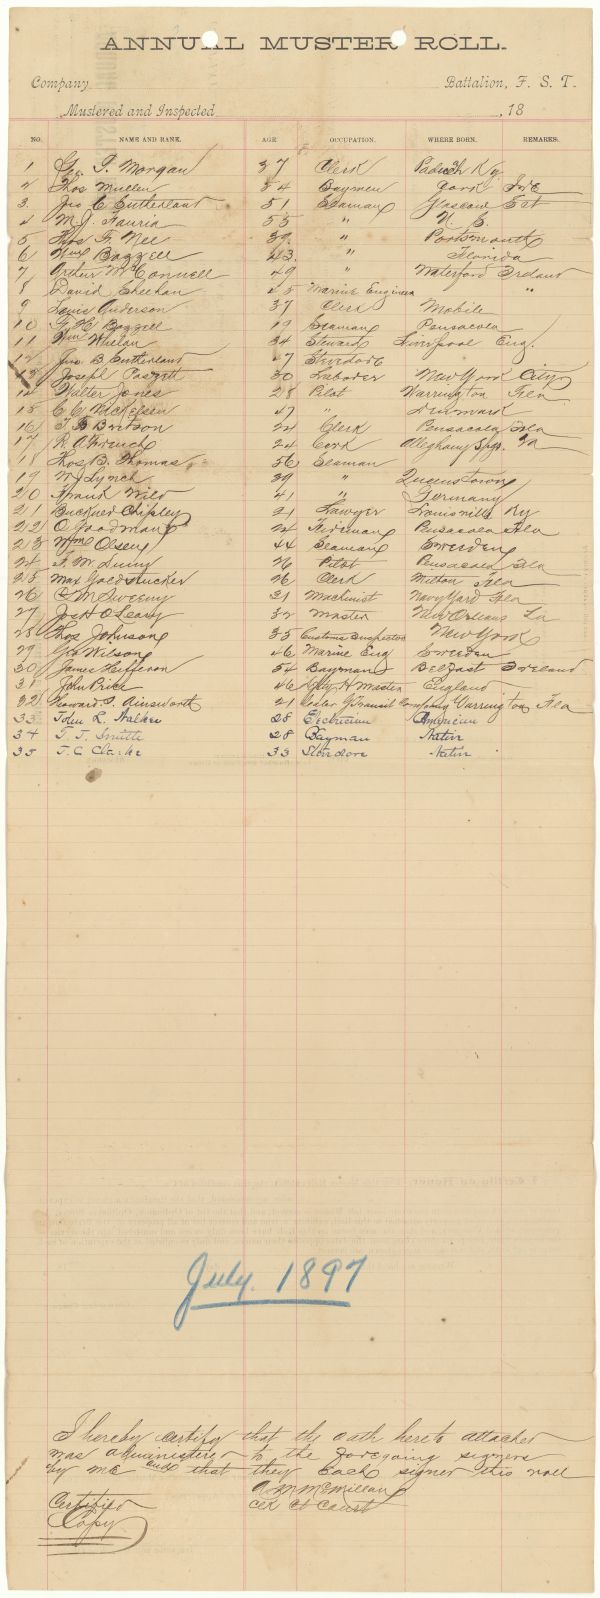 ANNUAL MUSTER ROLL.
Company
Battalion, F. S. T.
Mustered and Inspected , 18
NO. NAME AND RANK. AGE OCCUPATION. WHERE BORN. REMARKS.
1 Geo. T. Morgan 37 Clerk Paducah Ky
2 Thos Mullen 54 Baymen Cork Ire
3 Jno C Sutherland 51 Seaman Glascow Sct
4 M. J. Fauria 55 " N. S.
5 Thos F. Nee 39 " Portsmouth
6 Wm Bazzell 43 " Florida
7 Arthur McConnell 49 " Waterford Ireland
8 David Sheehan 45 Marine Engineer "
9 Louis Anderson 37 Clerk Mobile
10 G. H Bazzell 19 Seaman Pensacola
11 Wm Whelan 34 Steward Liverpool Eng.
12 Jno B Sutherland 47 Stevdore
13 Joseph Padgett 30 Laborer New York City
14 Walter Jones 28 Pilot Warrington Fla
15 C C Nickelsen 47 " Denmark
16 T B Britson 22 Clerk Pensacola Fla
17 R. A. French 22 Cook Alleghany Spgs. Va
18 Thos B. Thomas 56 Seaman
19 W J Lynch 39 " Queenstown
20 Frank Wild 41 " Germany
21 Buckner Chipley 21 Lawyer Louisville Ky
22 O Goodman 22 Fireman Pensacola Fla
23 Wm Olsen 44 Seaman Sweeden
24 F. W. Quiny 26 Pilot Pensacola Fla
25 Max Goldstucker 26 Clerk Milton Fla
26 C M Sweeny 31 Machinist Navy Yard Fla
27 Joe H O'Leary 32 Master New Orleans La
28 Thos Johnson 35 Customs Inspector New York
29 Geo Wilson 46 Marine Eng Sweeden
30 James Hefferon 54 Bayman Belfast Ireland
31 John Price 46 Cty H Master England
32 Howard S. Ainsworth 21 Warrington Fla
33 John L. Walker 28 Electrician American
34 T. J. Smith 28 Bayman Native
35 J. C Clarke 33 Stevdore Native
July. 1897
I hereby certify that the oath hereto attached
was administered to the foregoing signers
by me and that they each signed this roll
A M McMillan
Clk Ct Court
Certified
Copy